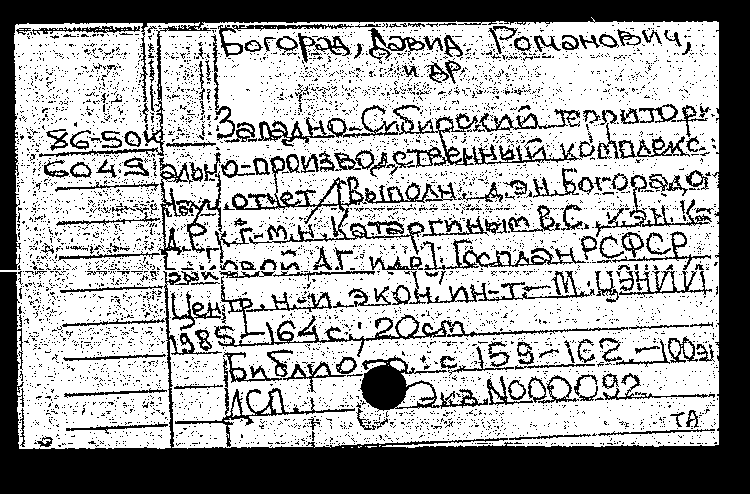 Богорад, Давид Романович,
и др
86-50к
6049
Западно-Сибирский территори-
ально-производственный комплекс:
Науч. отчет / [Выполн. д.э.н. Богорадом
Д.Р., к.г.-м.н. Катаргиным В.С., к.эн. Ка-
заковой А.Г. и др]; Госплан РСФСР,
Центр. н.-и. экон. ин-т.-М.: ЦЭНИИ
1985-164 с.; 20см
Библиогр.: с. 159-162.-100э
ДСП. Экз. N000092.
ТА